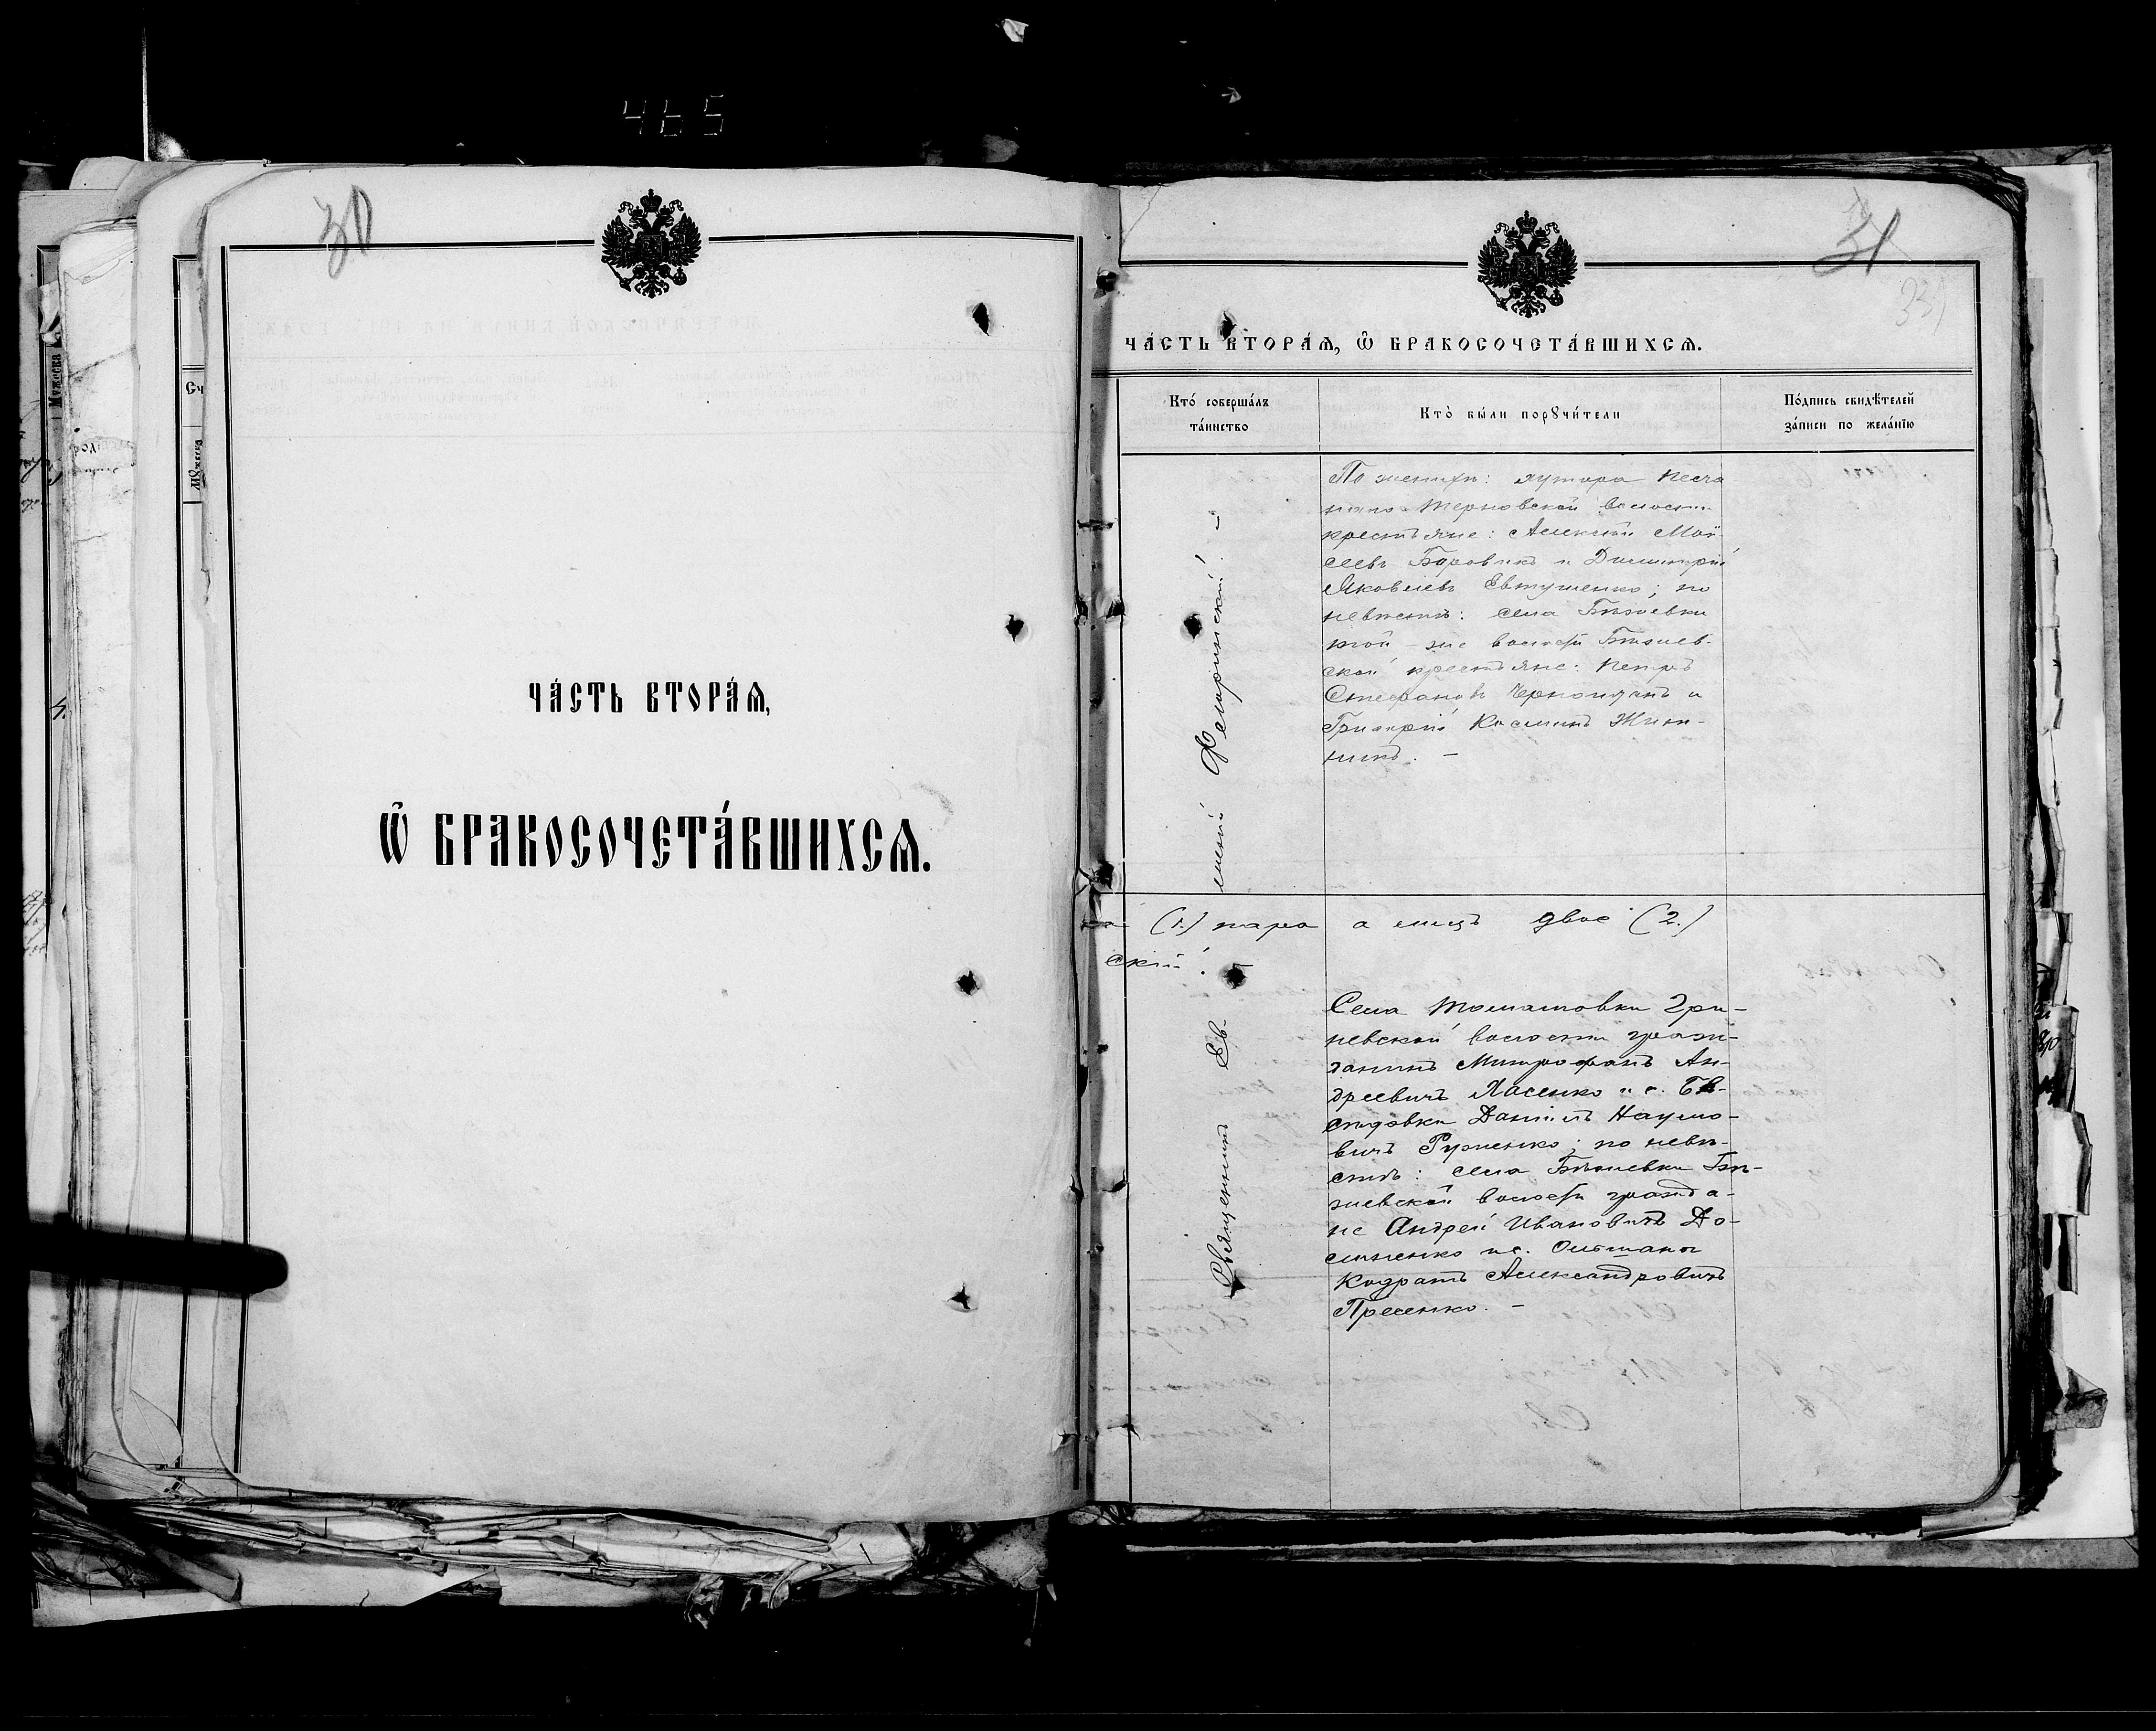 465
30
ЧА́СТЬ ВТОРА́Ѧ,
Ѽ БРАКОСОЧЕТА́ВШИХСѦ.
31
ЧА́СТЬ ВТОРА́Ѧ, Ѽ БРАКОСОЧЕТА́ВШИХСѦ.
Кто̀ соверша́лъ
та́инство
Кто̀ бы́ли порꙋчи́тели
По́дпись свидѣ́телей
за́писи по жела́нїю
По женихѣ: хутора Песча
наго Терновской волости
крестьяне: Алексѣй Мои
сеевъ Боровикъ и Димитрій
Яковлевъ Евтушенко; по
невѣстѣ: села Бѣжевки
той-же волости
ской крестьяне: Петръ
Стефановъ и
Григорій Косминъ
никъ. —
(1.) пара а лицъ двое (2.)
скій. —
Священникъ Ев-
Села Томашовки Гри-
невской волости граж-
данинъ Митрофанъ Ан-
дреевичъ Ласенко и с.
Даніилъ Наумо-
вичъ Руденко; по невѣ-
стѣ: села Бѣжевки Бѣ-
жевской волости гражда-
не Андрей Ивановичъ До-
и с. Ольшаны
Кодратъ Александровичъ